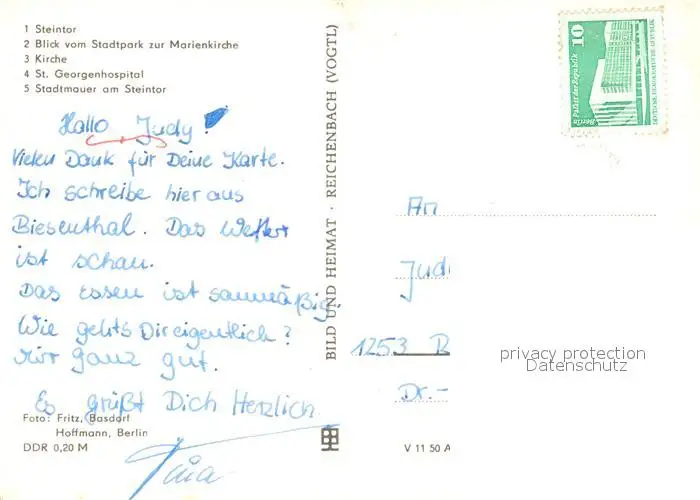 1 Steintor
2 Blick vom Stadtpark zur Marienkirche
3 Kirche
4 St. Georgenhospital
5 Stadtmauer am Steintor
Hallo Judy!
Vielen Dank für Deine Karte.
Ich schreibe hier aus
Biesenthal. Das Wetter
ist schau.
Das Essen ist saumäßig.
Wie gehts Dir eigentlich?
Mir ganz gut.
Es grüßt Dich Herzlich
Foto: Fritz, Basdorf
Hoffmann, Berlin
DDR 0,20 M
BILD UND HEIMAT · REICHENBACH (VOGTL)
V 11 50 A
10
Palast der Republik
Berlin
DEUTSCHE DEMOKRATISCHE REPUBLIK
An
Jud
1253 B
Dr.-
privacy protection
Datenschutz